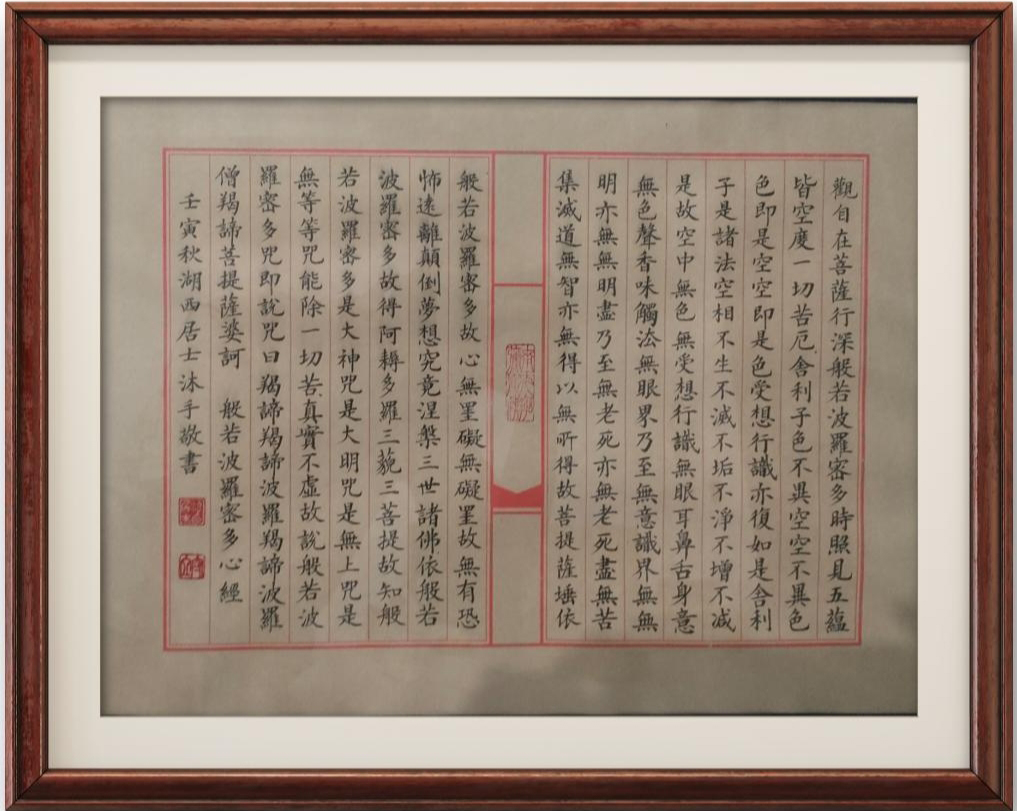 觀自在菩薩行深般若波羅密多時照見五蘊
皆空度一切苦厄舍利子色不異空空不異色
色即是空空即是色受想行識亦復如是舍利
子是諸法空相不生不滅不垢不淨不增不減
是故空中無色無受想行識無眼耳鼻舌身意
無色聲香味觸法無眼界乃至無意識界無無
明亦無無明盡乃至無老死亦無老死盡無苦
集滅道無智亦無得以無所得故菩提薩埵依
般若波羅密多故心無罣礙無礙罣故無有恐
怖遠離顛倒夢想究竟涅槃三世諸佛依般若
波羅密多故得阿耨多羅三藐三菩提故知般
若波羅密多是大神咒是大明咒是無上咒是
無等等咒能除一切苦真實不虛故說般若波
羅密多咒即說咒曰羯諦羯諦波羅羯諦波羅
僧羯諦菩提薩婆訶 般若波羅密多心經
壬寅秋湖西居士沐手敬書